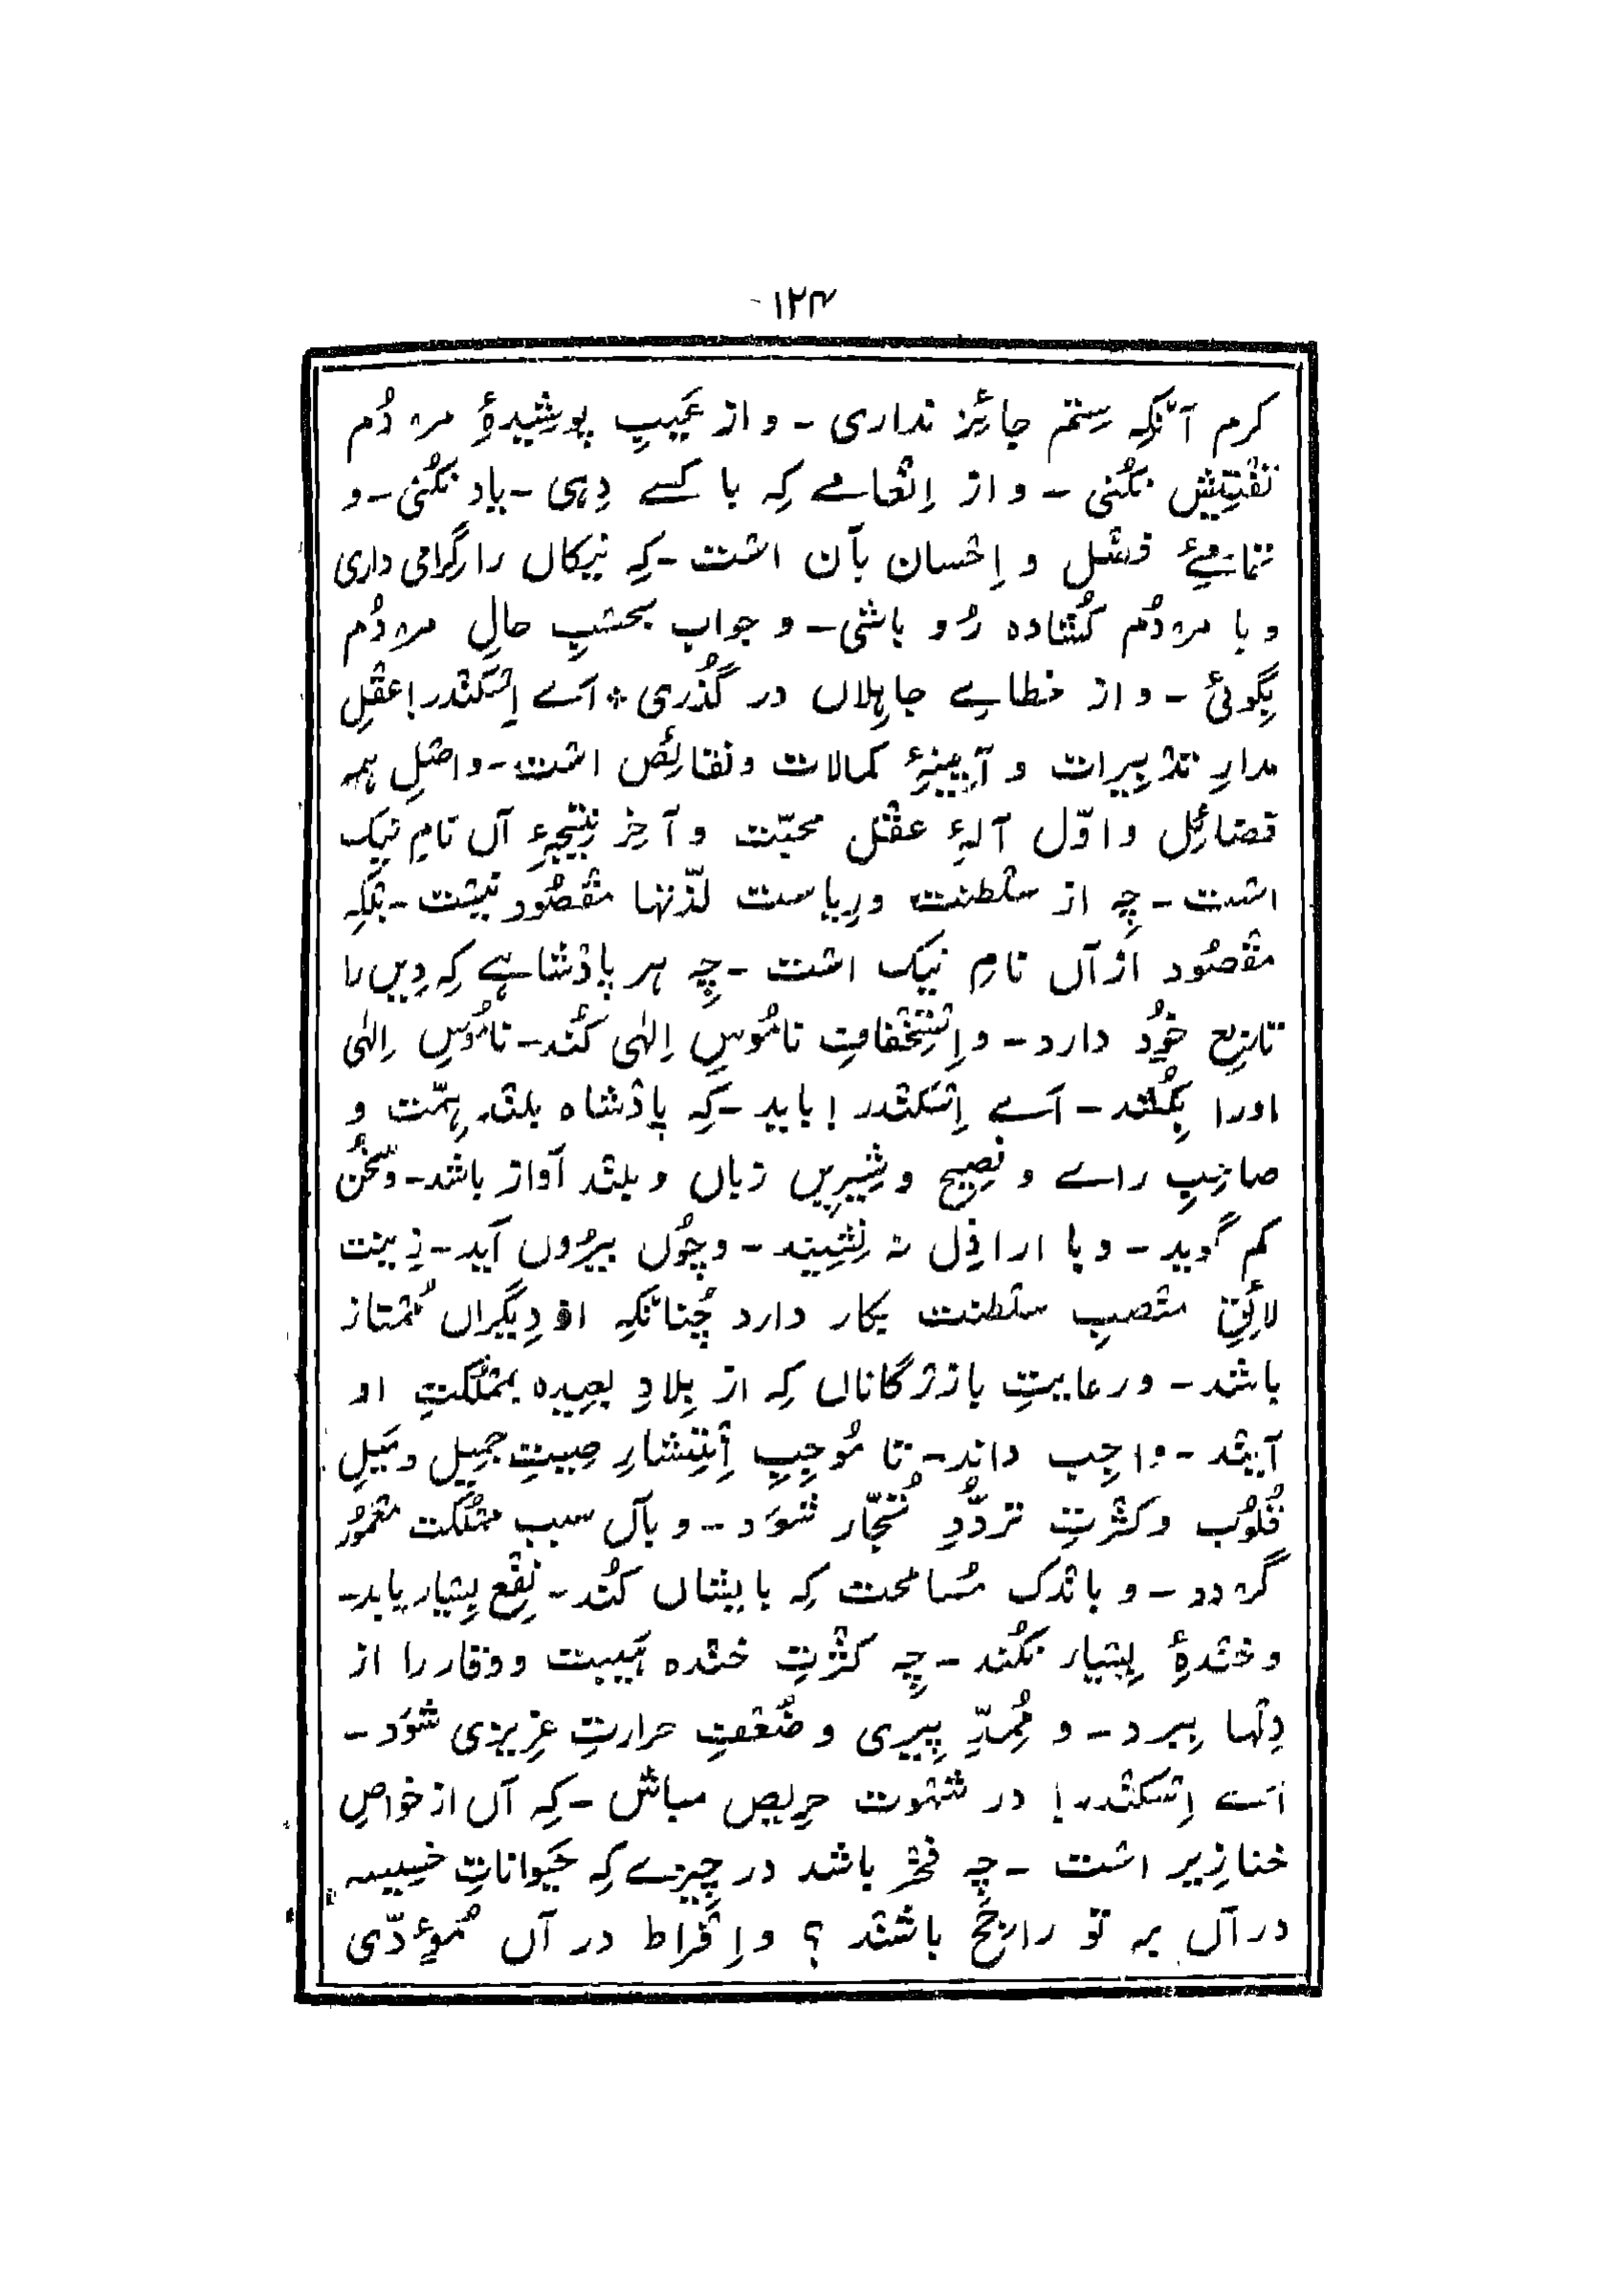 ۱۲۴
کرم آنکہ ستم جائز نداری ـ و از عَیبِ پوشیدۂ مردُم
تفتیش نکُنی ـ و از اِنعامے کِہ با کسے دِہی ـ یاد نکُنی ـ و
تمامیٔ فضل و اِحسان بآن است ـ کِہ نیکاں را گرامی داری
و با مردُم کُشادہ رُو باشی ـ و جواب بحسبِ حالِ مردُم
بگوئی ـ و از خطاے جاہِلاں در گُذری * اَے اِسکندر! عقل
مدارِ تدبیرات و آیینۂ کمالات و نقائِص است ـ و اصلِ ہمہ
فضائِل و اوّل آلۂ عقل محبّت و آخِر نتیجۂ آں نامِ نیک
است ـ چِہ از سلطنت و رِیاست لذّتہا مقصُود نیست ـ بلکِہ
مقصُود ازآں نامِ نیک است ـ چِہ ہر پادشاہے کِہ دِیں را
تابِع خُود دارد ـ و اِستِخفافِ نامُوسِ اِلٰہی کُند ـ نامُوسِ اِلٰہی
اورا بِکُشد ـ اَے اِسکندر! باید ـ کِہ پادشاہ بلند ہِمّت و
صاحِبِ راے و فصِیح و شِیرِیں زباں و بلند آواز باشد ـ و سُخُن
کم گوید ـ و با اراذِل نہ نِشیند ـ و چُوں بیرُوں آید ـ زِینت
لائِقِ منصبِ سلطنت بکار دارد چُنانکِہ از دِیگراں مُمتاز
باشد ـ و رعایتِ بازرگاناں کِہ از بِلادِ بعِیدہ بمملکتِ او
آیند ـ واجِب داند ـ تا مُوجِبِ اِنتِشارِ صِیتِ جمِیل و مَیلِ
قُلُوب و کثرتِ تردُّدِ تُجّار شوَد ـ و بآں سبب مملکت معمُور
گردد ـ و باندک مُسامحت کِہ با ایشاں کُند ـ نفع بِسیار یابد ـ
و خندۂ بِسیار نکُند ـ چِہ کثرتِ خندہ ہَیبت و وقار را از
دِلہا ببرد ـ و مُمِدِّ پِیری و ضُعفِ حرارتِ غرِیزی شوَد ـ
اَے اِسکندر! در شہوت حرِیص مباش ـ کِہ آں از خواصِ
خنازِیر است ـ چِہ فخر باشد در چِیزے کِہ حَیواناتِ خسِیسہ
درآں بر تو راجِح باشند ؟ و اِفراط در آں مُؤدّی